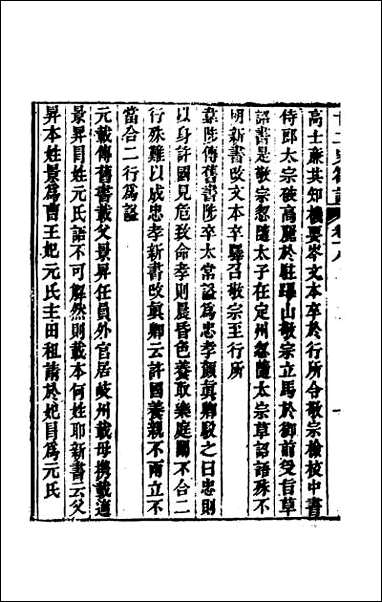 廿二史劄記 卷十八
高士廉共知機要岑文本卒於行所令敬宗檢校中書
侍郎太宗破高麗於駐蹕山敬宗立馬於御前受旨草
詔書是敬宗忽隨太子在定州忽隨太宗草詔語殊不
明新書改文本卒驛召敬宗至行所
韋陟傳舊書陟卒太常諡為忠孝顏真卿駁之曰忠則
以身許國見危致命孝則晨昏色養取樂庭闈不合二
行殊難以成忠孝新書改真卿云許國養親不兩立不
當合二行為諡
元載傳舊書載父景昇任員外官居岐州載母攜載適
景昇冒姓元氏語不可解然則載本何姓耶新書云父
昇本姓景為曹王妃元氏主田租請於妃冒為元氏